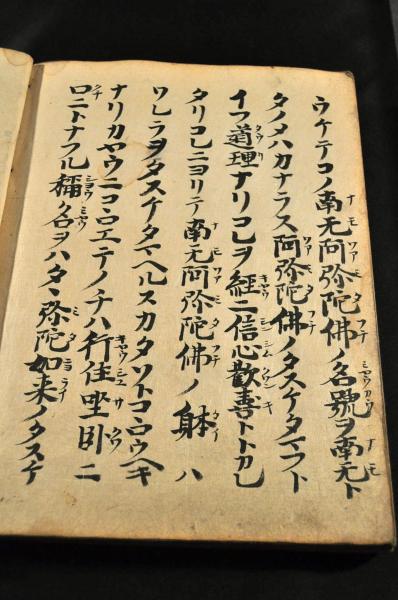 ウケテコノ南无阿弥陀佛ノ名號ヲ南无ト
タノメハカナラス阿弥陀佛ノタスケタマフト
イフ道理ナリコレヲ經ニ信心歡喜トトカレ
タリコレニヨリテ南无阿弥陀佛ノ躰ハ
ワレラヲタスケタマヘルスカタソトコヽロウヘキ
ナリカヤウニコヽロエテノチハ行住坐臥ニ
口ニトナフル稱名ヲハタヽ弥陀如来ノタスケ